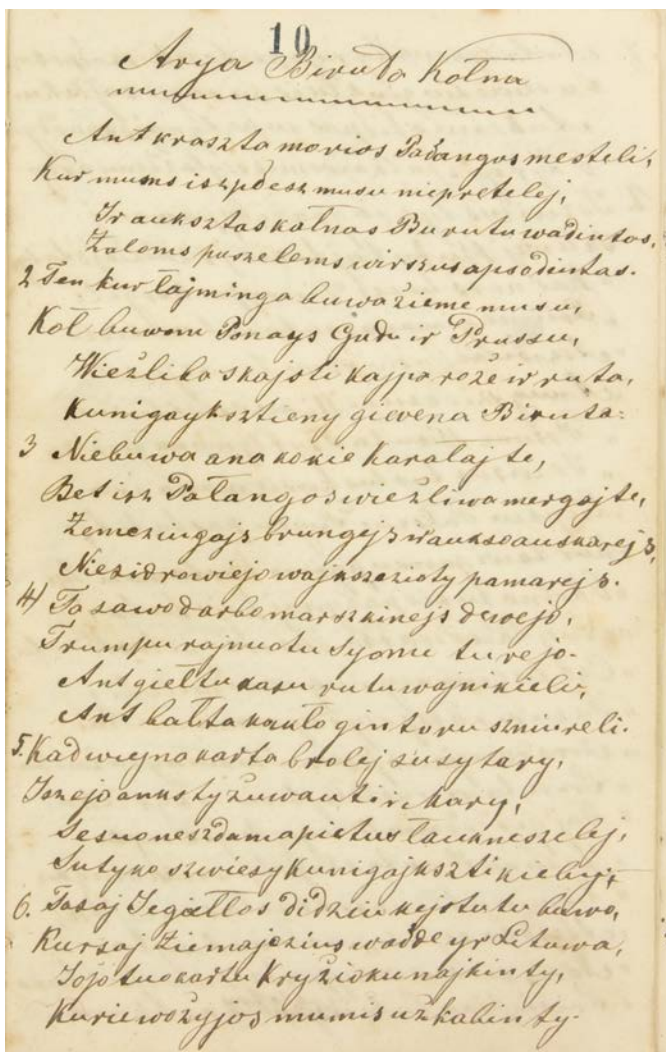 10
Arya Biruta Kołna
Ant kraszta morios Pałangos mesteli,
Kur mums iszpdesz musu nieprетelej,
Ir auksztas kałnas Burutu wadintas,
Żaloms puszelems wirszus apsodintas.
2 Ten kur łajminga buwa żieme musu,
Koł buwom Ponays Gudu ir Prussu,
Wieżliba skajsti kajpa roże ir ruta,
Kunigayksztieny giwena Biruta.
3 Niebuwa ana kokie Karałajte,
Bet isz Pałangos wieżliwa mergajte,
Żemczingajs brungejs ir aukso auskarejs,
Niezidrowiejo wajkszczioty pamarejs.
4) Ta sawo darbo marszkinejs dewejo,
Trumpu rajnuotu Syonu turejo.
Ant giełtu kasu rutu wajnikieli,
Ant bałta kakło gintoru szniureli.
5. Kad wiejna karta brolej su sytary,
Iszejo anksty żuwauti i Mary,
Sesuo neszdama pietus łaukneszelej,
Sutyko szwiesy Kunigajkszti kiely,
6. Tasaj Jegiełłos didziu kejstutu buwo,
Kursaj Ziemajczius wałde yr Lituwa,
Jojo tuo kartu Kryżioku najkinty,
Kurie wożyjos mumis użkabinty.